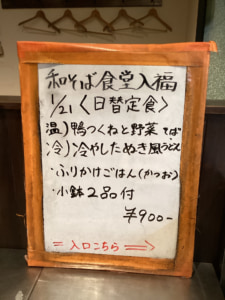 和そば食堂入福
1/21〈日替定食〉
温)鴨つくねと野菜そば
冷)冷やしたぬき風うどん
・ふりかけごはん(かつお)
・小鉢2品付
¥900-
=入口こちら=⇒